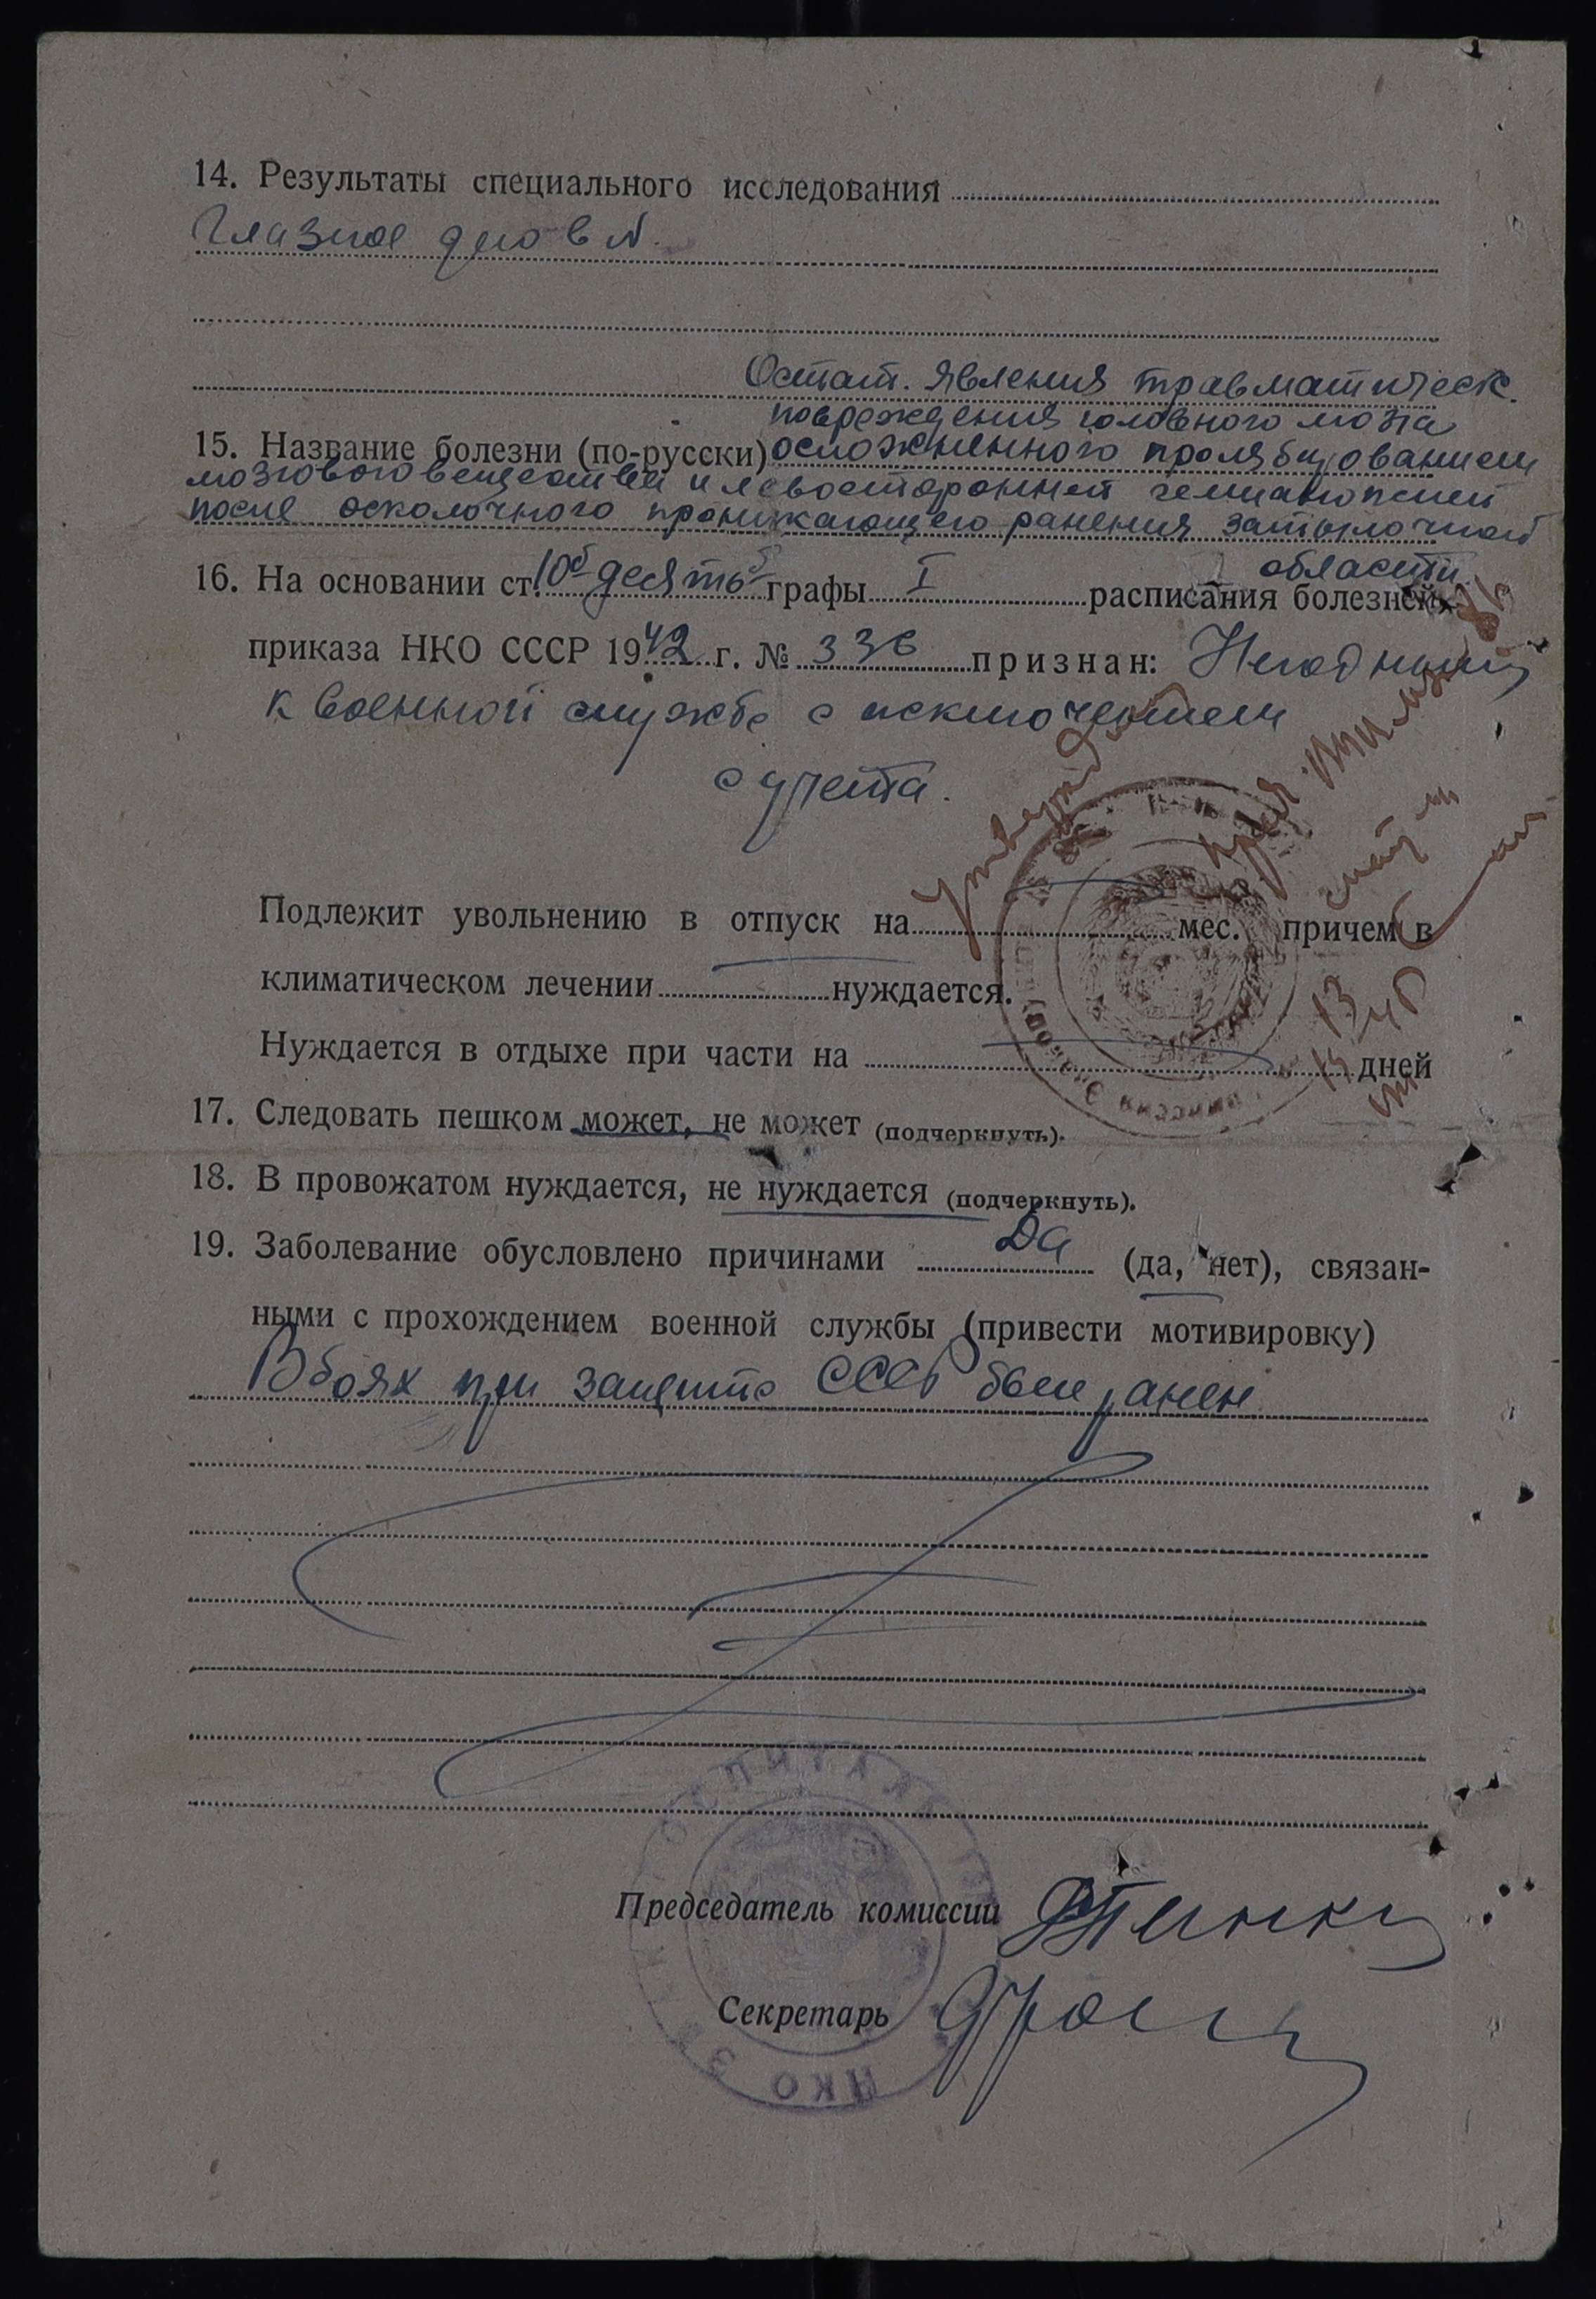 14. Результаты специального исследования
Глазное дно в N.
Остат. явления травматическ.
повреждения головного мозга
15. Название болезни (по-русски) осложненного пролябированием
мозгового вещества и левосторонней гемианопсией
после осколочного проникающего ранения затылочной
области.
16. На основании ст. 10б десять б графы I расписания болезней
приказа НКО СССР 1942 г. № 336 признан: Негодный
к военной службе с исключением
с учета.
Подлежит увольнению в отпуск на мес. причем в
климатическом лечении нуждается.
Нуждается в отдыхе при части на дней
17. Следовать пешком может, не может (подчеркнуть).
18. В провожатом нуждается, не нуждается (подчеркнуть).
19. Заболевание обусловлено причинами Да (да, нет), связан-
ными с прохождением военной службы (привести мотивировку)
В боях при защите СССР был ранен
Председатель комиссии
Секретарь
НКО